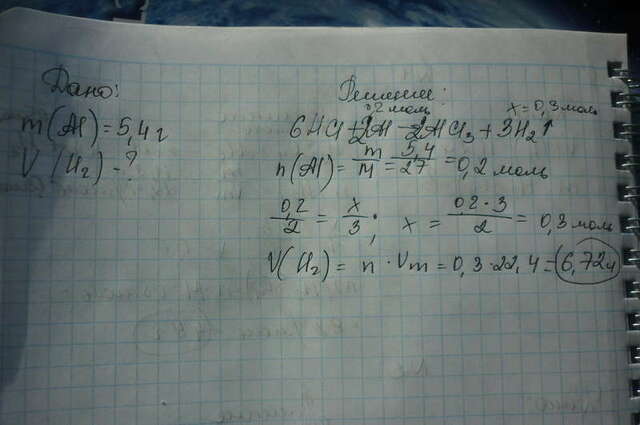 Дано:
m(Al)=5,4 г
V(H₂)-?
Решение:
0,2 моль x=0,3 моль
6HCl+2Al=2AlCl₃+3H₂↑
n(Al)=m/M=5,4/27=0,2 моль
0,2/2=x/3; x=0,2·3/2=0,3 моль
V(H₂)=n·Vm=0,3·22,4=6,72л